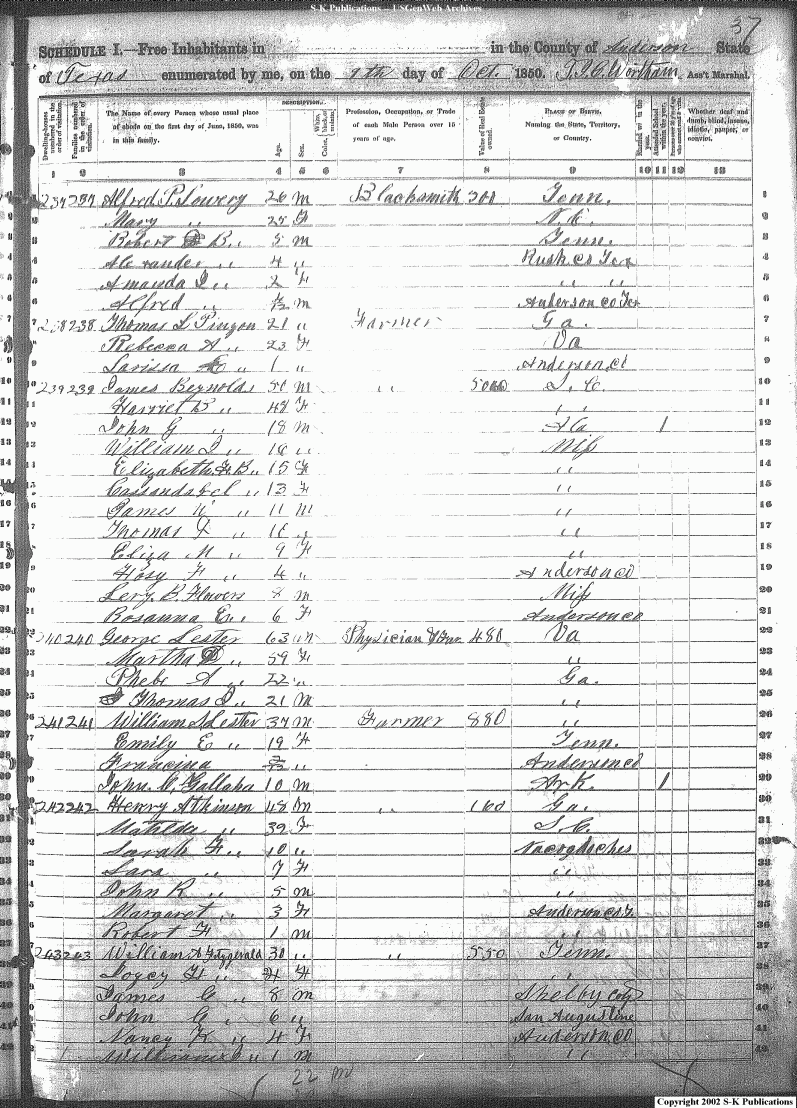 S-K Publications - USGenWeb Archives
37
SCHEDULE I.—Free Inhabitants in in the County of Anderson State
of Texas enumerated by me, on the 7th day of Oct. 1850. Ass't Marshal.
Dwelling-houses numbered in the order of visitation. Families numbered in the order of visitation. The Name of every Person whose usual place of abode on the first day of June, 1850, was in this family. DESCRIPTION. Age. Sex. Color, White, black, or mulatto. Profession, Occupation, or Trade of each Male Person over 15 years of age. Value of Real Estate owned. PLACE OF BIRTH. Naming the State, Territory, or Country. Married within the year. Attended School within the year. Whether deaf and dumb, blind, insane, idiotic, pauper, or convict.
1 2 3 4 5 6 7 8 9 10 11 12 13
1 237 237 Alfred P. Lowery 26 M Blacksmith 200 Tenn. 1
2 Mary " 25 F N.C. 2
3 Robert B. " 5 M Tenn. 3
4 Alexander " 4 " Rusk Co Tex 4
5 Amanda " 2 F " " 5
6 Alfred " M Anderson co Tx 6
7 238 238 Thomas L 21 " Farmer Ga. 7
8 Rebecca A " 23 F Va 8
9 Larissa " 1 " Anderson, Co 9
10 239 239 James Reynolds 50 M " 5000 S.C. 10
11 Harriet B " 48 F " " 11
12 John G " 18 M 1 12
13 William " " Miss 13
14 Elizabeth B " 15 F " 14
15 " 13 F " 15
16 James " 11 M " 16
17 Thomas " " " 17
18 Eliza M " 9 F " 18
19 F " 4 " Anderson Co 19
20 Levy B. Flowers 8 M Miss 20
21 Rosanna E. " 6 F Anderson co 21
22 240 240 George Lester 63 M Physician 480 Va 22
23 Martha " 59 F " 23
24 Phebe A " 22 " Ga. 24
25 Thomas " 21 M " 25
26 241 241 William Lester 37 M Farmer 880 " 26
27 Emily E " 19 F Tenn. 27
28 Francina " Anderson Co 28
29 John C. Gallaha 10 M Ark. 1 29
30 242 242 Henry Atkinson 48 M " 160 Ga. 30
31 Matilda " 39 F S.C. 31
32 Sarah F " 10 " Nacogdoches 32
33 Sara " 7 F " 33
34 John R " 5 M " 34
35 Margaret " 3 F Anderson co T. 35
36 Robert F 1 M " 36
37 243 243 William A Fitzgerald 30 " " 550 Tenn. 37
38 F " F " 38
39 James G " 8 M Shelby 39
40 John G " 6 " San Augustine 40
41 Nancy K " 4 F Anderson Co 41
42 William " 1 M " 42
22
Copyright 2002 S-K Publications